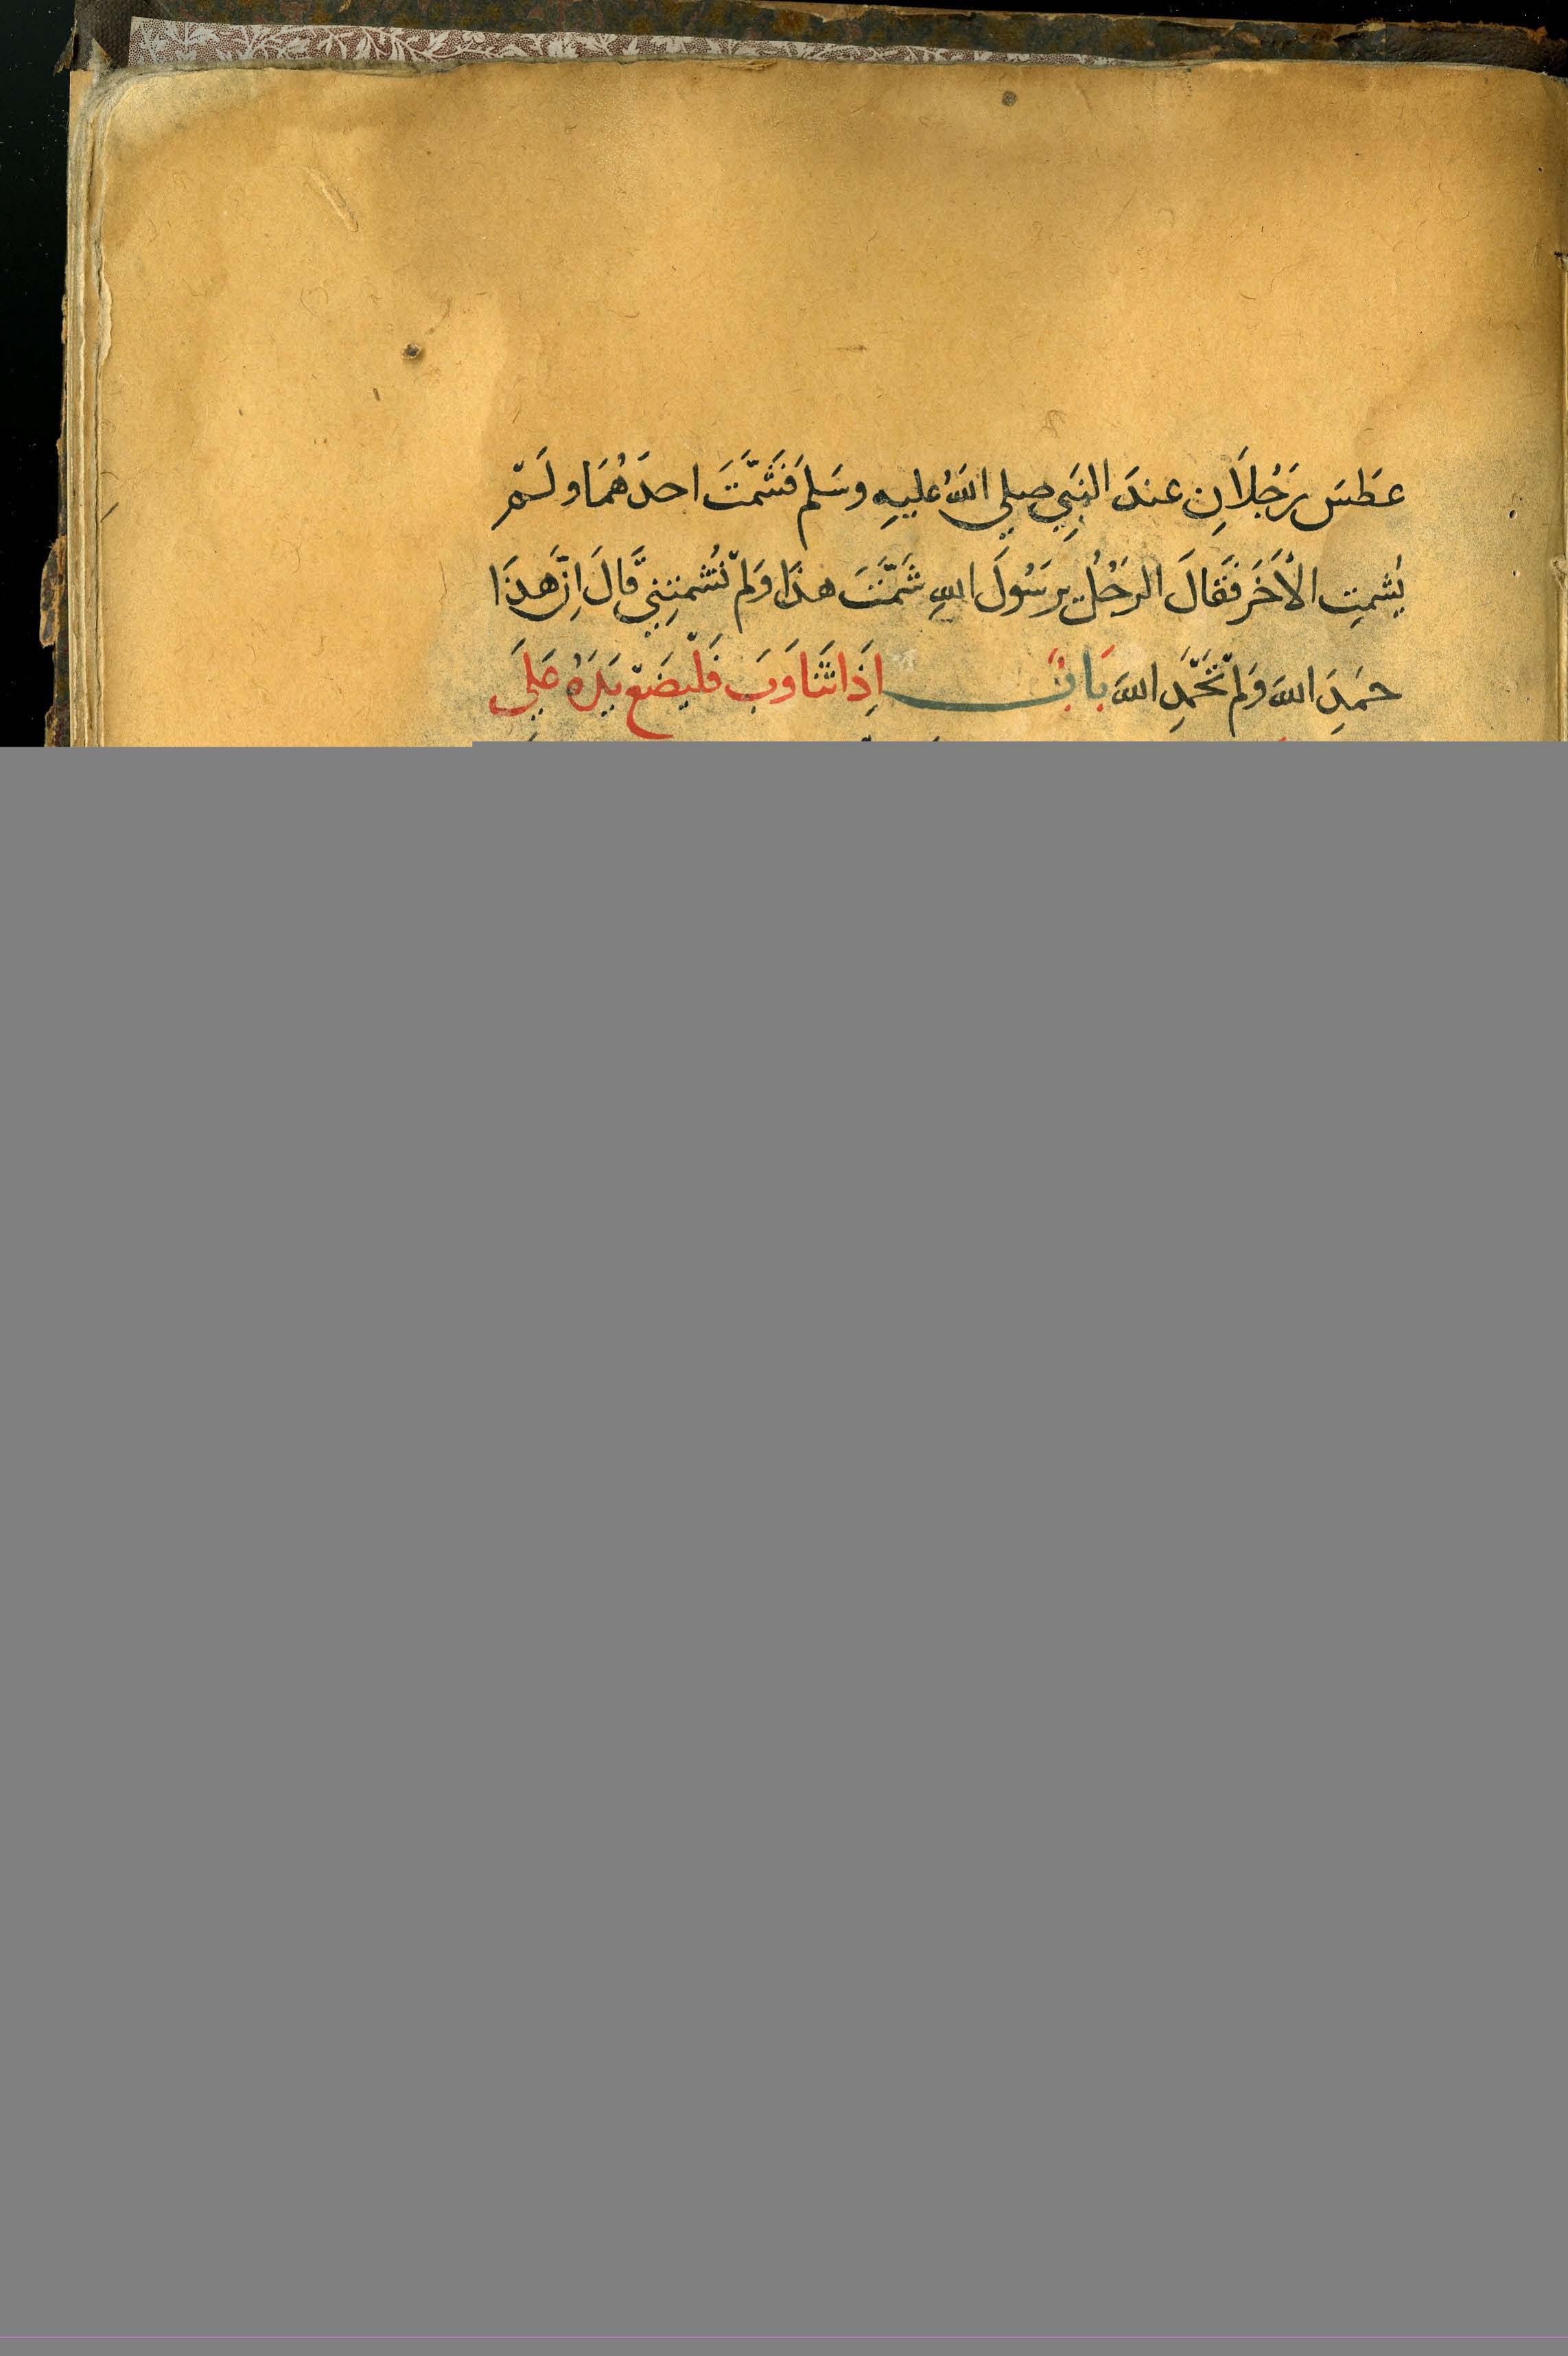 عَطَسَ رَجُلَانِ عندَ النبِي صلي اللهُ عليهِ وسَلم فَشَمَّتَ احدَهُمَا ولَمْ
يُشمتِ الأخَرَ فَقَالَ الرجُلُ يرَسُولَ اللهِ شَمَّتَ هذَا وَلمْ تُشمتنِي قَالَ اِنَّ هذَا
حَمِدَ اللهَ وَلمْ تَحْمَدِ اللهَ بَابٌ اِذَا تَثَاوَبَ فَلْيَضَعْ يَدَهُ عَلِيَ